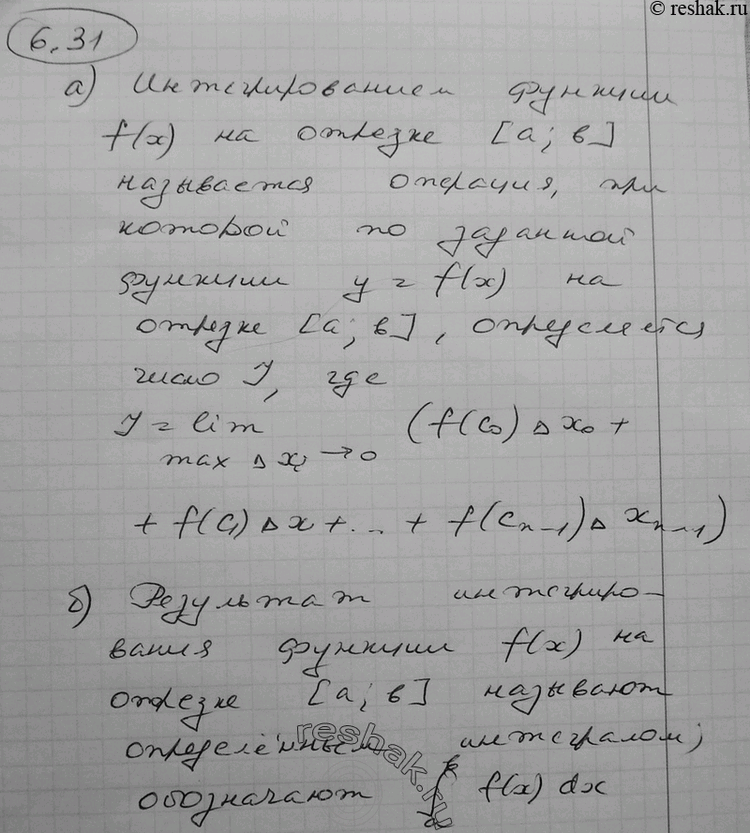 © reshak.ru
6.31
а) Интегрированием функции
f(x) на отрезке [a; в]
называется операция, при
которой по заданной
функции y = f(x) на
отрезке [a; в], определяется
число J, где
J = lim (f(c₀) Δ x₀ +
max Δ xᵢ → 0
+ f(c₁) Δ x + ... + f(cₙ₋₁) Δ xₙ₋₁)
б) Результат интегриро-
вания функции f(x) на
отрезке [a; в] называют
определённым интегралом;
обозначают ∫ₐᵇ f(x) dx
reshak.ru